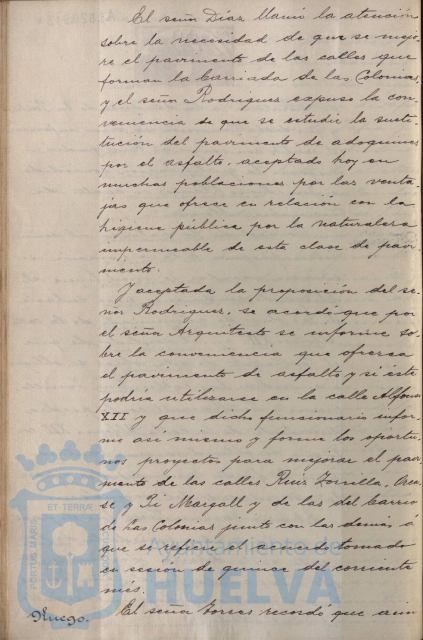 El señor Díaz llamó la atención
sobre la necesidad de que se mejo-
re el pavimento de las calles que
forman la barriada de las Colonias,
y el señor Rodriguez expuso la con-
veniencia de que se estudie la susti-
tución del pavimento de adoquines
por el asfalto, aceptado hoy en
muchas poblaciones por las venta-
jas que ofrece en relación con la
higiene pública por la naturaleza
impermeable de esta clase de pavi-
mento.
Y aceptada la proposición del se-
ñor Rodriguez, se acordó que por
el señor Arquitecto se informe so-
bre la conveniencia que ofrezca
el pavimento de asfalto y si éste
podría utilizarse en la calle Alfonso
XII y que dicho funcionario infor-
me asi mismo y forme los oportu-
nos proyectos para mejorar el pavi-
mento de las calles Ruiz Zorrilla,
se y Pi Margall y de las del barrio
de las Colonias junto con las demás a
que se refiere el acuerdo tomado
en sesión de quince del corriente
mes.
Ruego.
El señor Torres recordó que
PORTUS MARIS ET TERRÆ
Ayuntamiento de
HUELVA